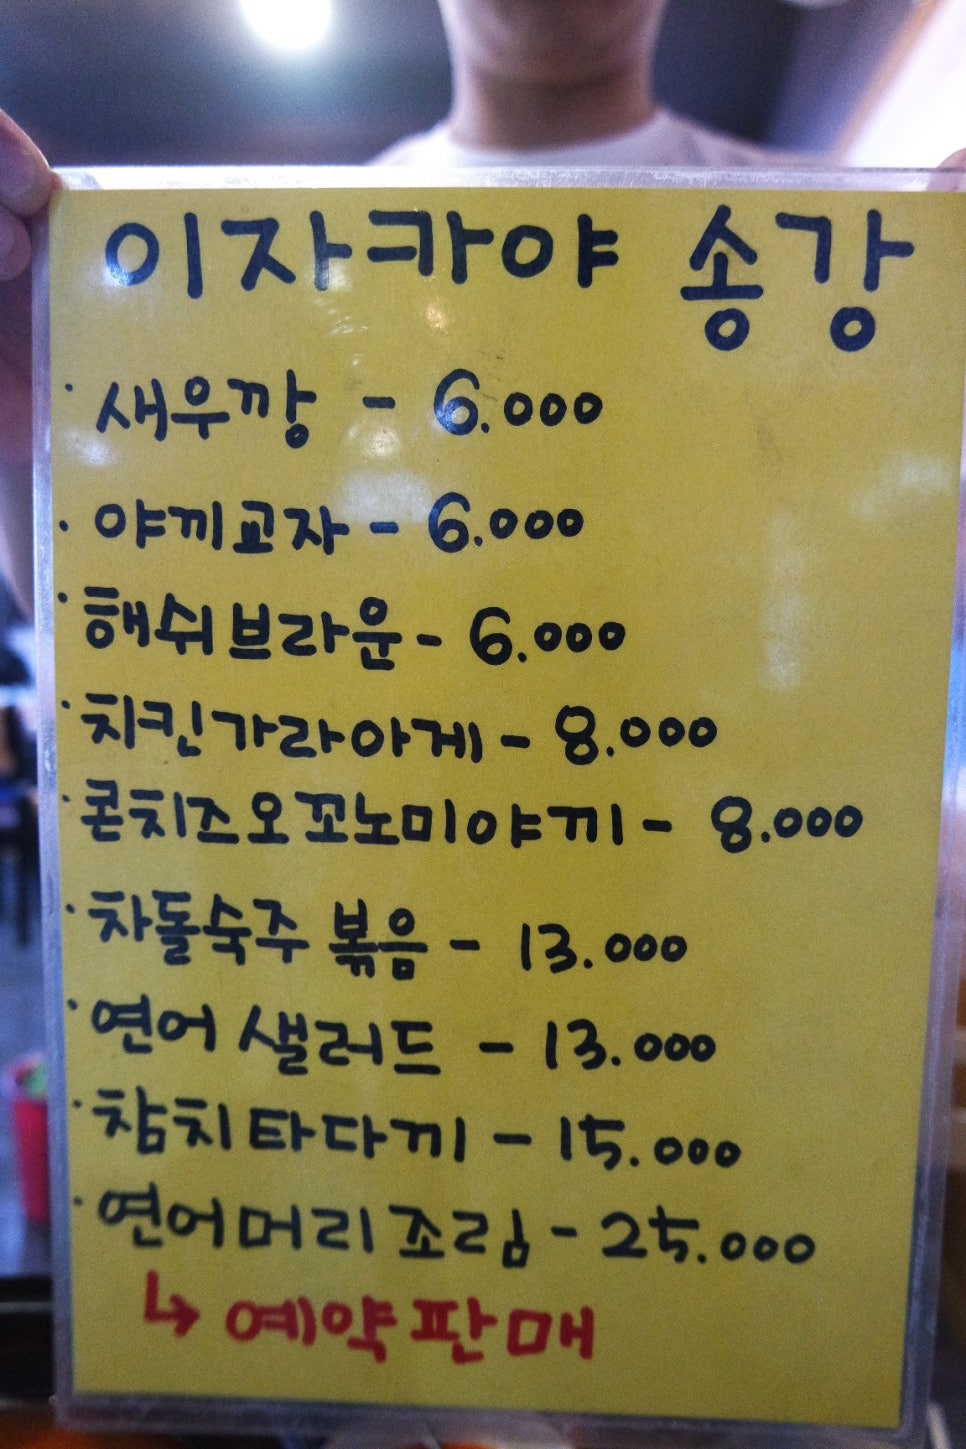 이자카야 송강
· 새우깡 - 6.000
· 야끼교자 - 6.000
· 해쉬브라운 - 6.000
· 치킨가라아게 - 8.000
· 콘치즈오꼬노미야끼 - 8.000
· 차돌숙주 볶음 - 13.000
· 연어 샐러드 - 13.000
· 참치타다끼 - 15.000
· 연어머리조림 - 25.000
↳ 예약판매